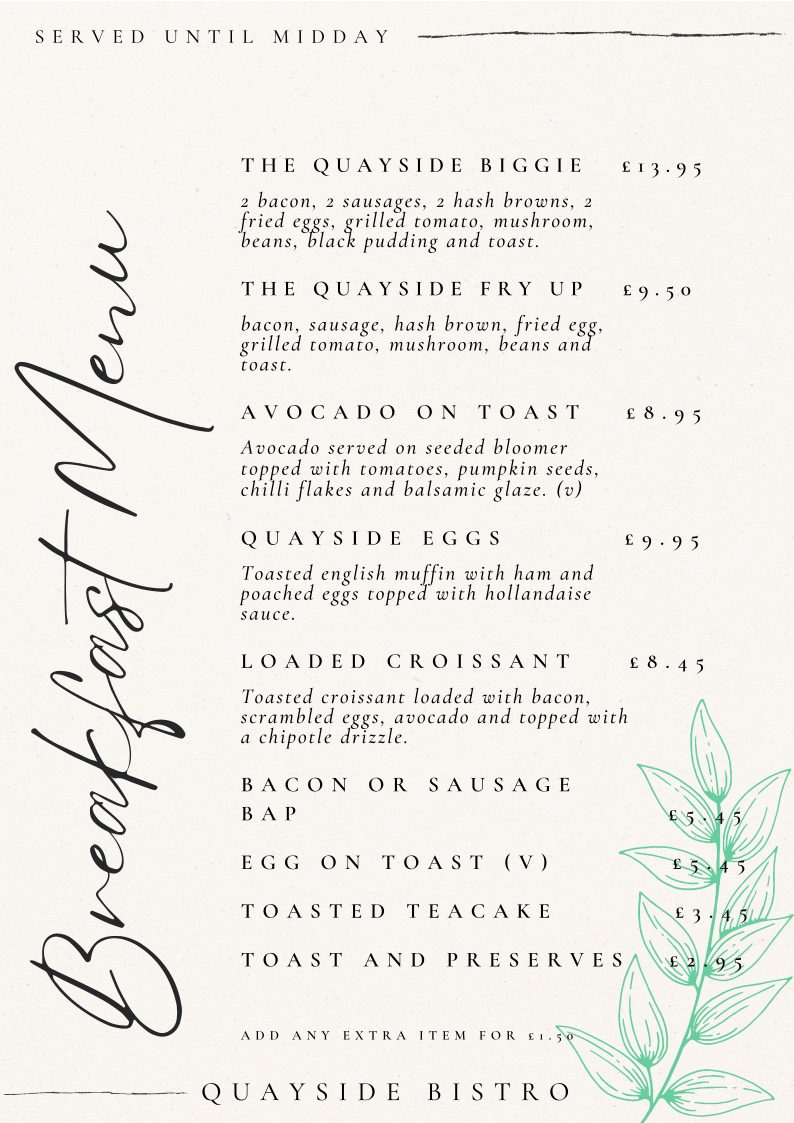 SERVED UNTIL MIDDAY
Breakfast Menu
THE QUAYSIDE BIGGIE £13.95
2 bacon, 2 sausages, 2 hash browns, 2
fried eggs, grilled tomato, mushroom,
beans, black pudding and toast.
THE QUAYSIDE FRY UP £9.50
bacon, sausage, hash brown, fried egg,
grilled tomato, mushroom, beans and
toast.
AVOCADO ON TOAST £8.95
Avocado served on seeded bloomer
topped with tomatoes, pumpkin seeds,
chilli flakes and balsamic glaze. (v)
QUAYSIDE EGGS £9.95
Toasted english muffin with ham and
poached eggs topped with hollandaise
sauce.
LOADED CROISSANT £8.45
Toasted croissant loaded with bacon,
scrambled eggs, avocado and topped with
a chipotle drizzle.
BACON OR SAUSAGE
BAP £5.45
EGG ON TOAST (V) £5.45
TOASTED TEACAKE £3.45
TOAST AND PRESERVES £2.95
ADD ANY EXTRA ITEM FOR £1.50
QUAYSIDE BISTRO